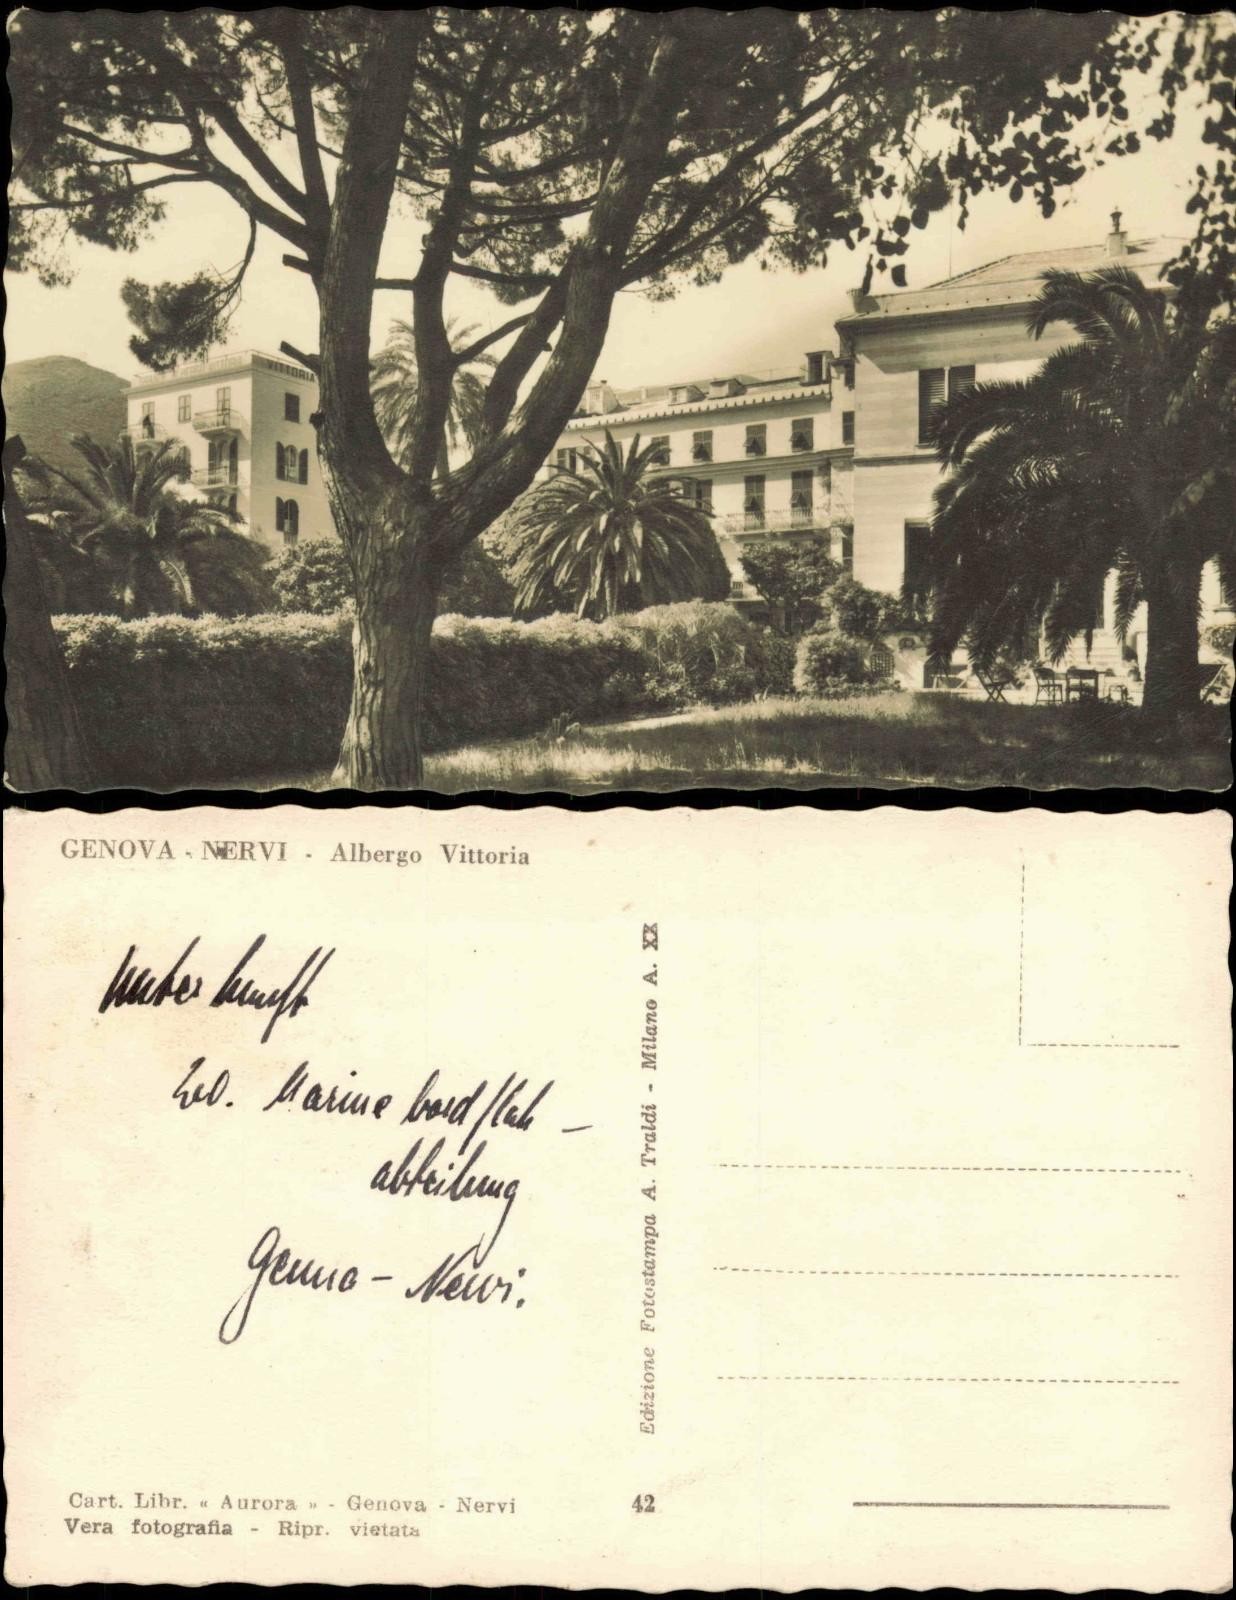 VITTORIA
GENOVA - NERVI - Albergo Vittoria
Unterkunft
Marine bord flak –
abteilung
Genua – Nervi.
Edizione Fotostampa A. Traldi - Milano A. XX
Cart. Libr. « Aurora » - Genova - Nervi
Vera fotografia - Ripr. vietata
42